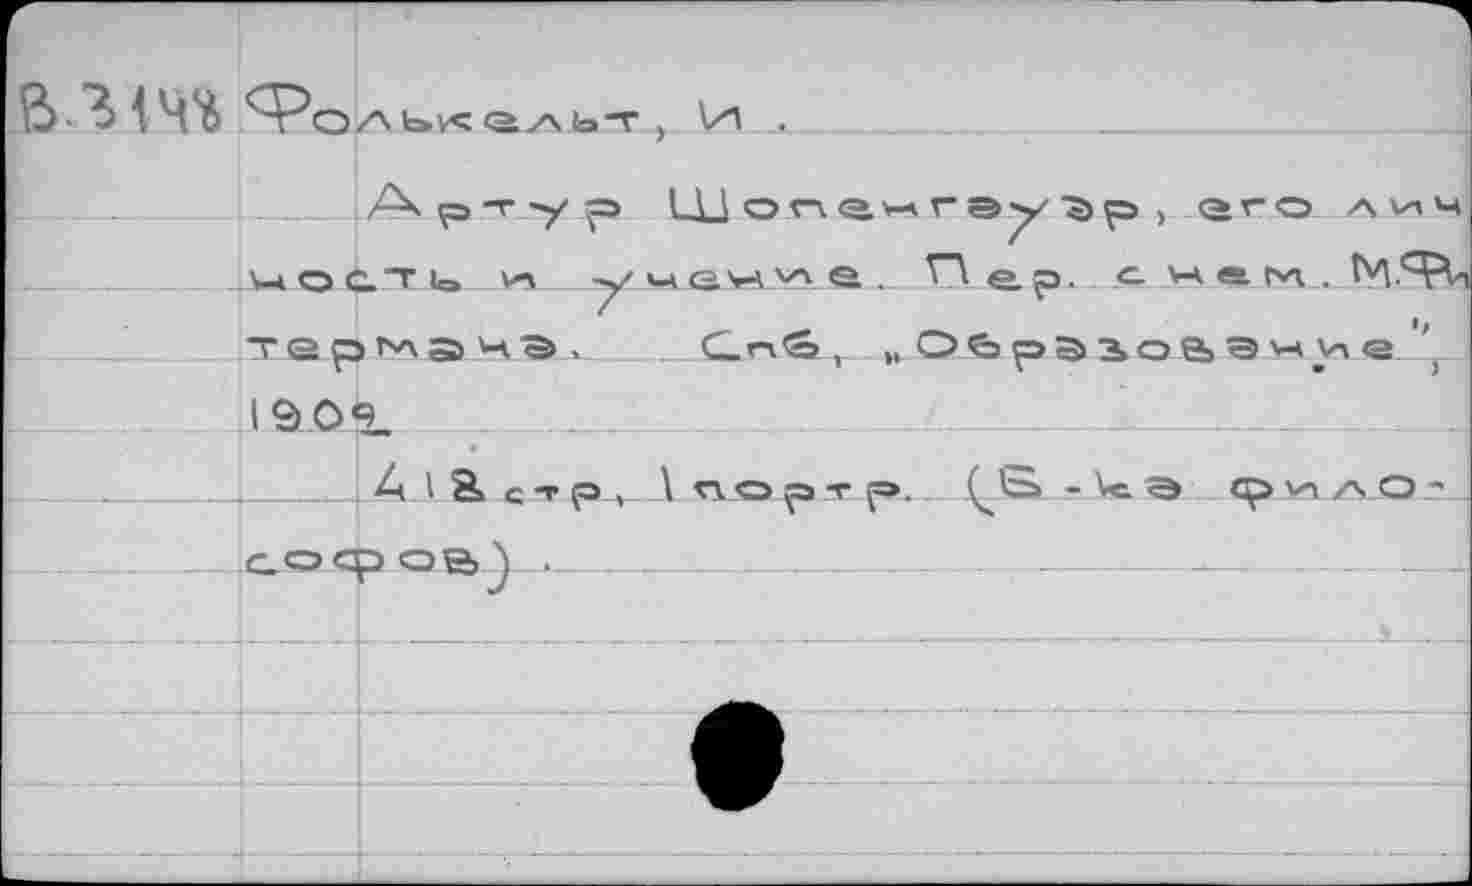 В.3148 Фолькельт, И .
Артур Шопенгауэр, его лич
ность и учение. Пер. с нем. М.Фи
термана. Спб, „Образование",
1902
418 стр, 1 портр. (Б-ка фило-
софов) .